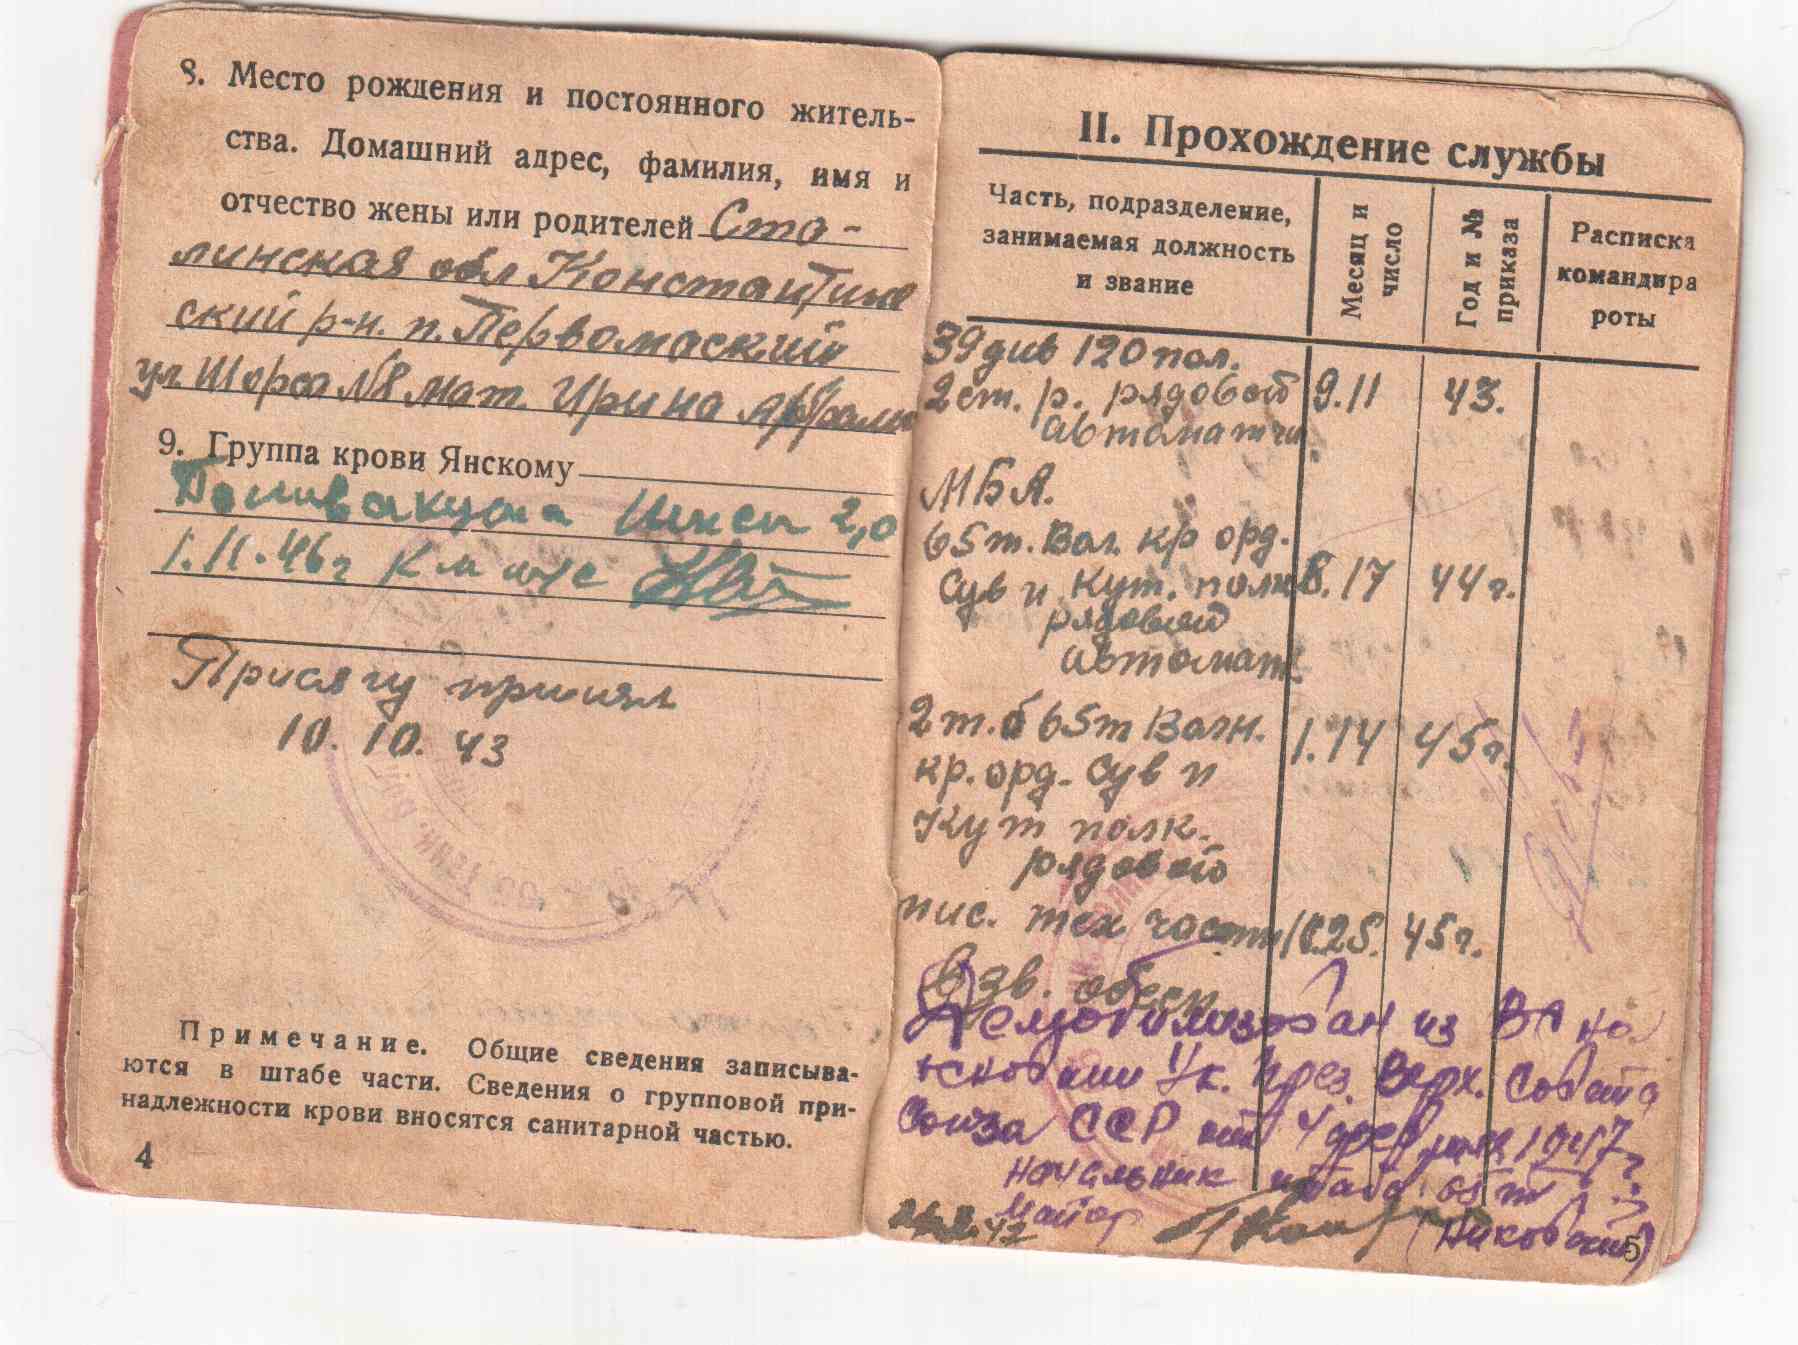 8. Место рождения и постоянного житель-
ства. Домашний адрес, фамилия, имя и
отчество жены или родителей Ста-
линская обл Константинов
ский р-н. п. Первомаский
ул Шорса №8 мат. Ирина
9. Группа крови Янскому
Поливакцина 2,0
1.11.46г
Присягу принял
10. 10. 43
Примечание. Общие сведения записыва-
ются в штабе части. Сведения о групповой при-
надлежности крови вносятся санитарной частью.
4
II. Прохождение службы
Часть, подразделение,
занимаемая должность
и звание
Месяц и
число
Год и №
приказа
Расписка
командира
роты
39 див 120 пол.
2 ст. р. рядовой 9.11 43.
автоматчи
МБА.
65 т. Вол. кр орд.
Сув и Кут. полк 8.17 44 г.
рядовой
автомат.
2 т. б 65 т Волн. 1.14 45 г.
кр. орд. Сув и
Кут полк.
рядовой
пис. тех части 45 г.
взв. обесп.
Демобилизован из ВА на
основании Ук. През. Верх. Совета
Союза ССР от 4 февраля 1947 г
Начальник штаба 65 т
Майор
5